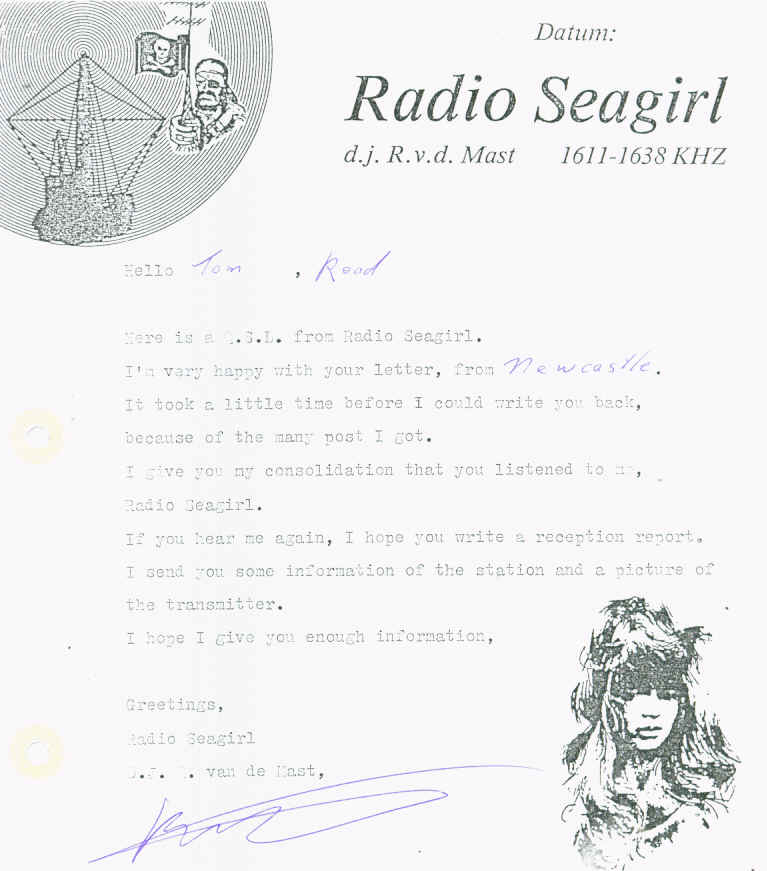 Datum:
Radio Seagirl
d.j. R.v.d. Mast 1611-1638 KHZ
Hello Tom , Read
Here is a Q.S.L. from Radio Seagirl.
I'm very happy with your letter, from Newcastle.
It took a little time before I could write you back,
because of the many post I got.
I give you my consolidation that you listened to me,
Radio Seagirl.
If you hear me again, I hope you write a reception report.
I send you some information of the station and a picture of
the transmitter.
I hope I give you enough information,
Greetings,
Radio Seagirl
D.J. R. van de Mast,